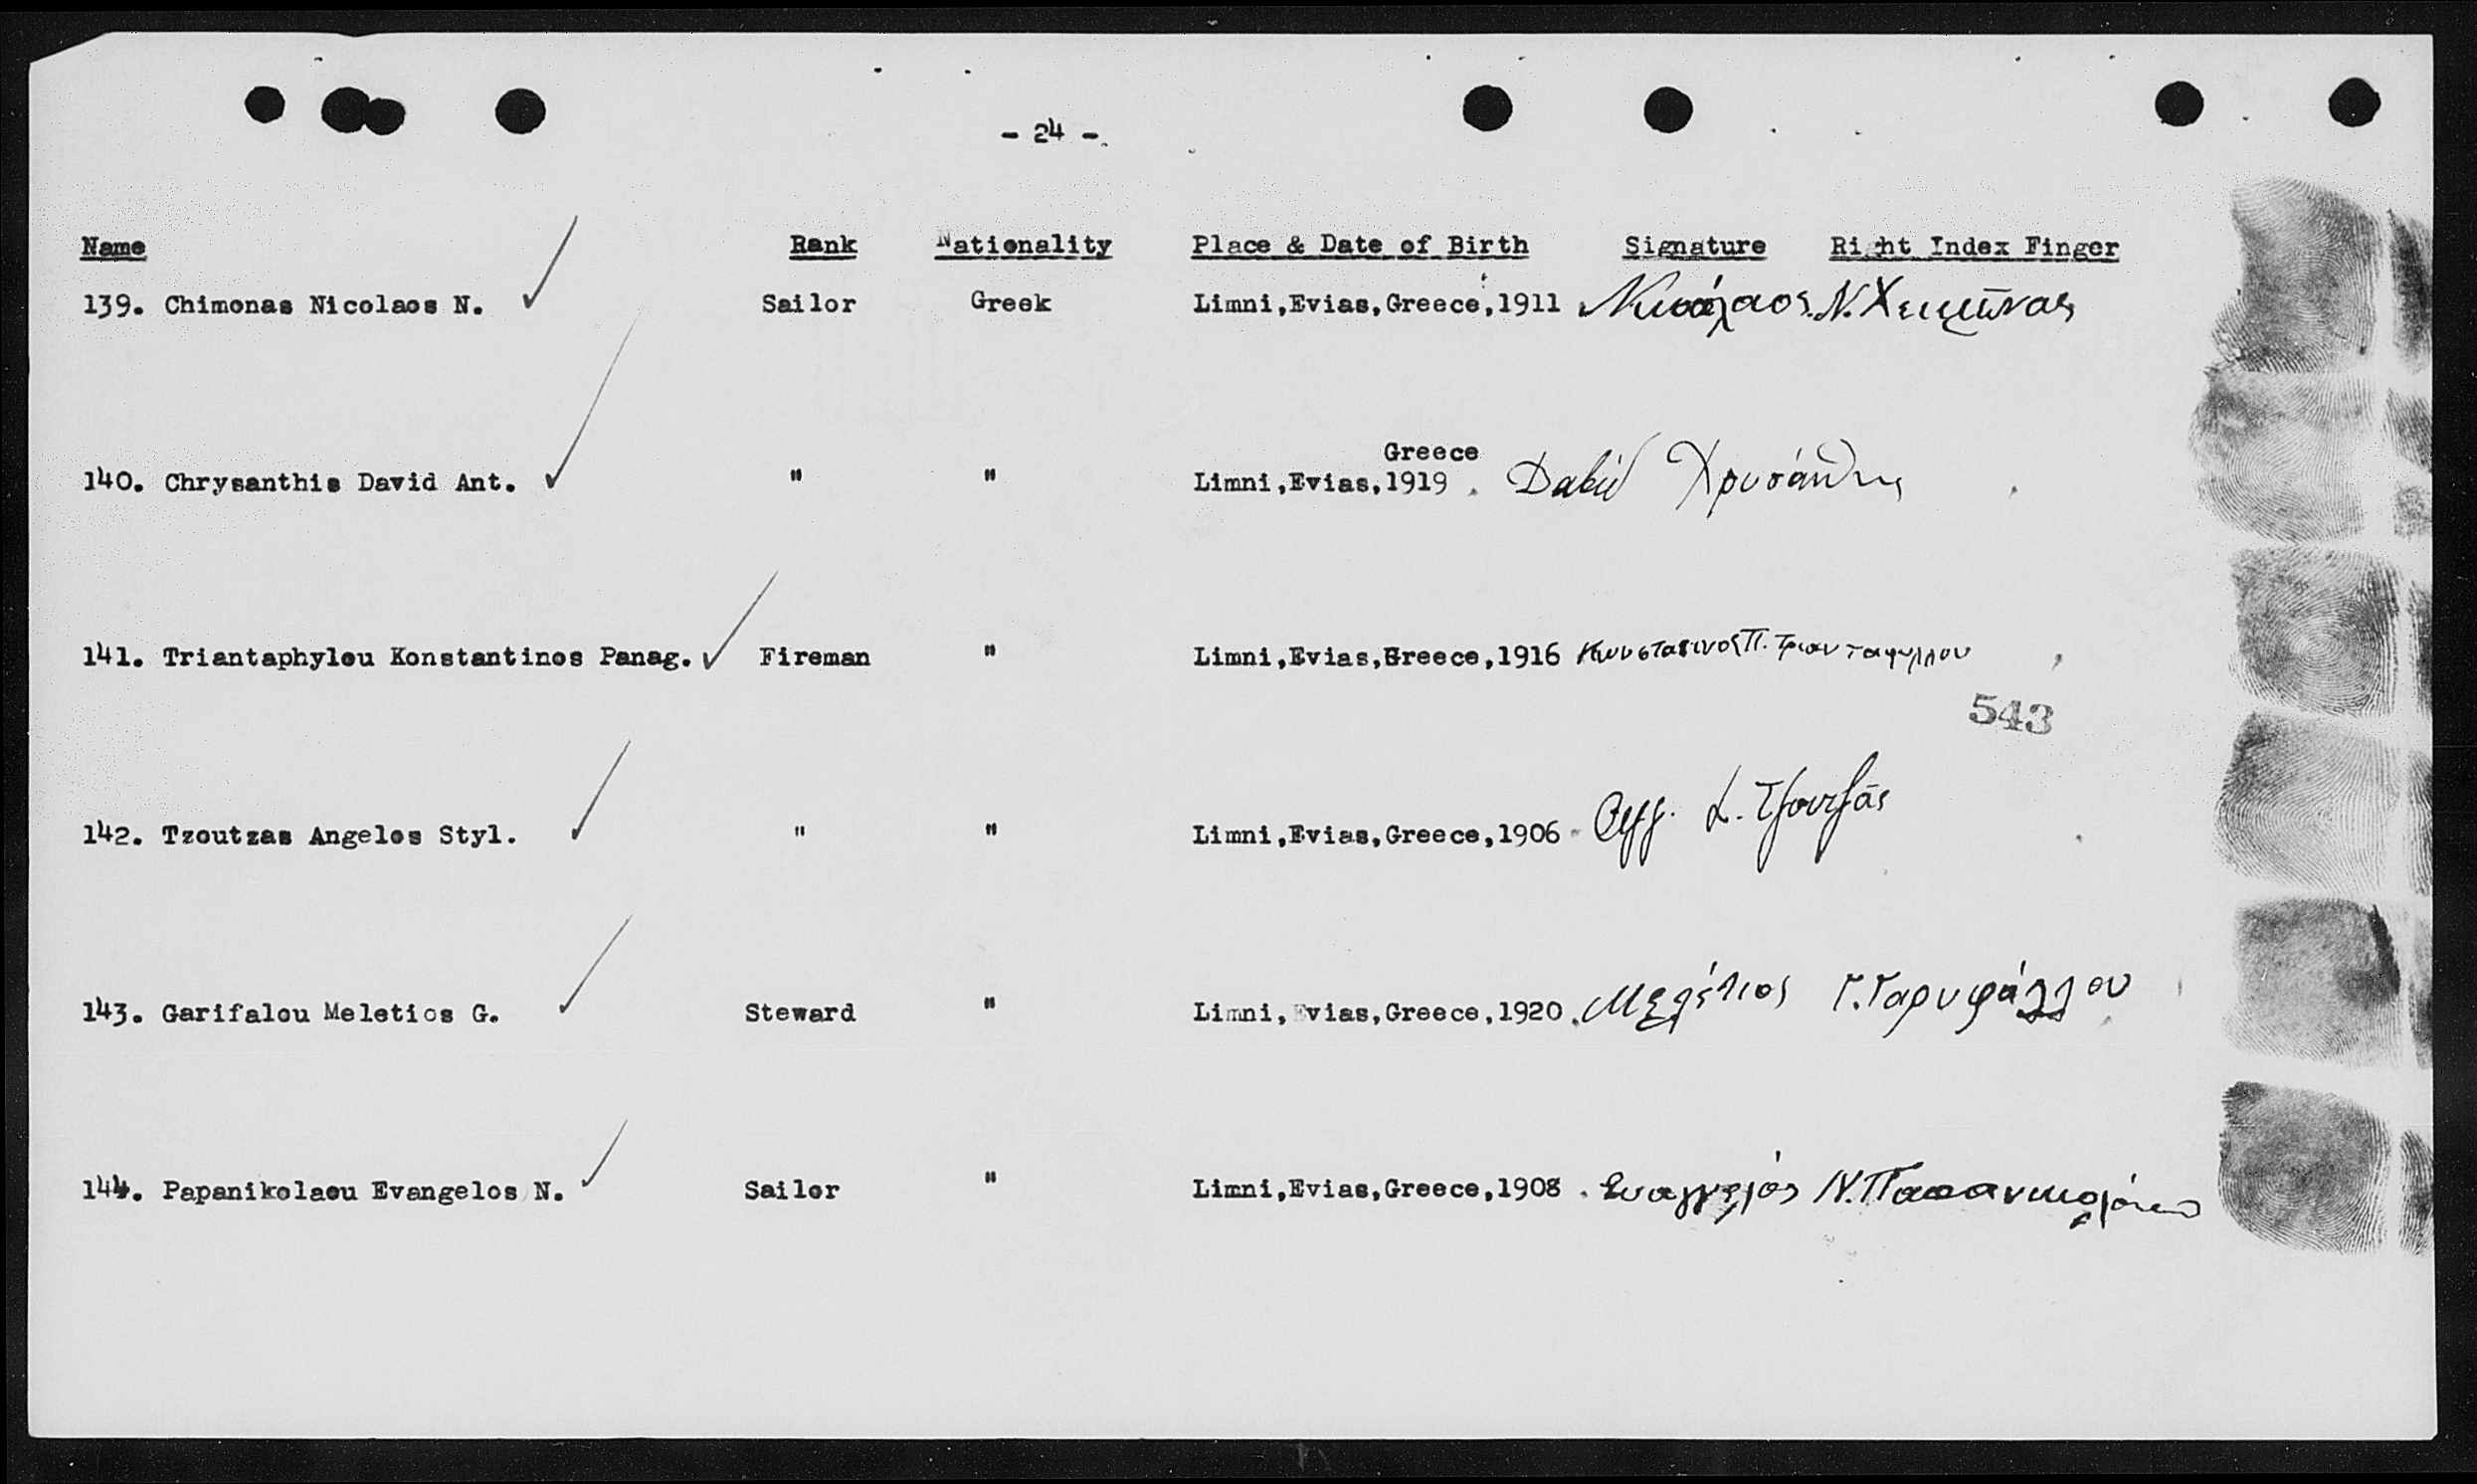 - 24 -
Name Rank Nationality Place & Date of Birth Signature Right Index Finger
139. Chimonas Nicolaos N. Sailor Greek Limni,Evias,Greece,1911 Νικόλαος Ν. Χειμῶνας
Greece
140. Chrysanthis David Ant. " " Limni,Evias,1919 Δαβίδ Χρυσάνθης
141. Triantaphylou Konstantinos Panag. Fireman " Limni,Evias,Greece,1916 Κωνσταtινος Π. Τριανταφυλλου
543
142. Tzoutzas Angelos Styl. " " Limni,Evias,Greece,1906 Αγγ. Σ. Τζουτζᾶς
143. Garifalou Meletios G. Steward " Limni,Evias,Greece,1920 Μελέτιος Γ. Γαρυφάλλου
144. Papanikolaou Evangelos N. Sailor " Limni,Evias,Greece,1908 Ευαγγελος Ν. Παπανικολάου